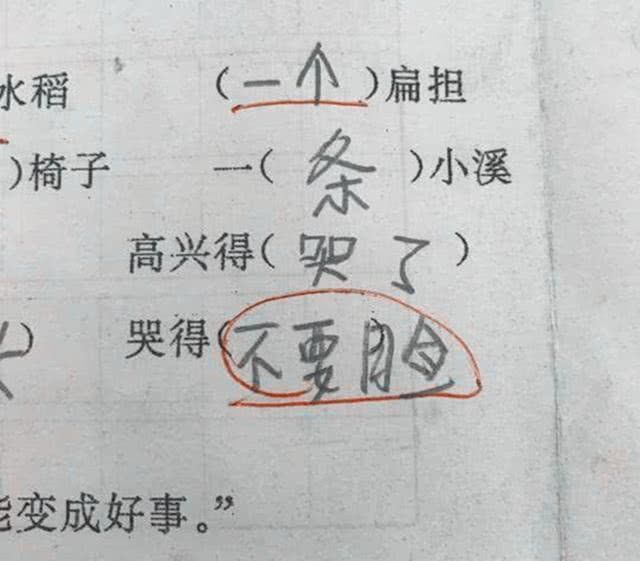 水稻 （一个）扁担
）椅子 一（条）小溪
高兴得（哭了）
） 哭得（不要胆）
能变成好事。”